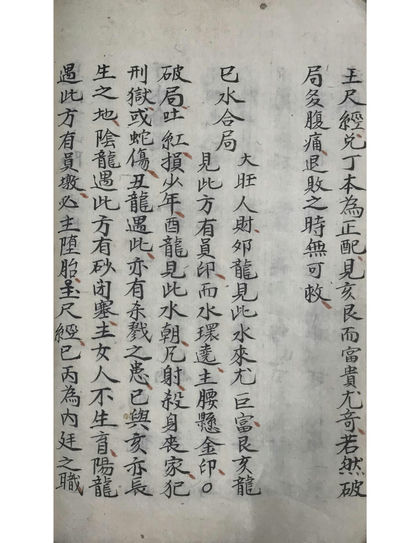 玉尺經兌丁本為正配見亥艮而富貴尤奇若然破
局多腹痛退敗之時無可救
巳水合局
大旺人財卯龍見此水來尤巨富艮亥龍
見此方有員印而水環遶主腰懸金印○
破局吐紅損少年酉龍見此水朝凡射殺身喪家犯
刑獄或蛇傷丑龍遇此亦有杀戮之患巳與亥亦長
生之地陰龍遇此方有砂閉塞主女人不生育陽龍
遇此方有員墩必主墮胎玉尺經巳丙為內廷之職